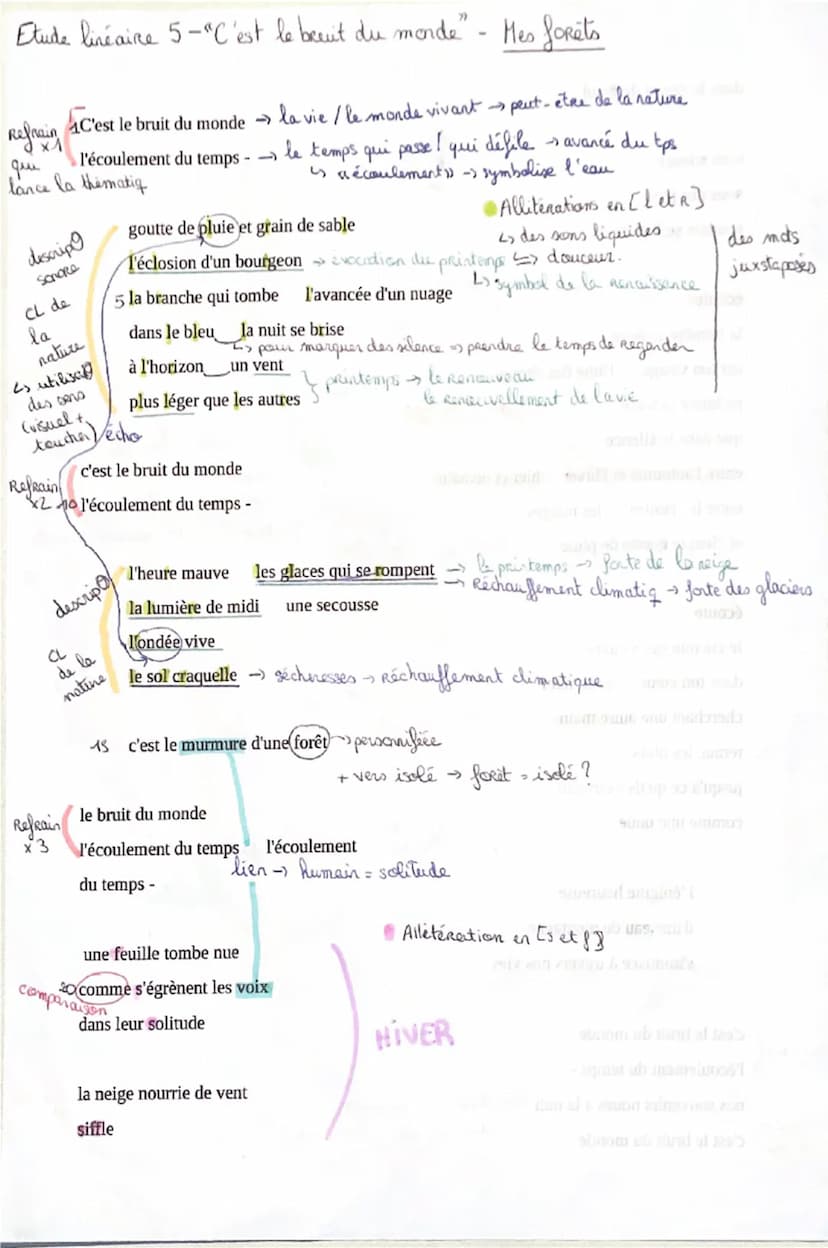 Etude linéaire 5 - "C'est le bruit du monde" - Mes forêts
Refrain x1 qui lance la thématiq
1 C'est le bruit du monde → la vie / le monde vivant → peut-être de la nature
l'écoulement du temps - → le temps qui passe / qui défile → avancé du tps
↳ «écoulement» → symbolise l'eau
Allitérations en [l et R]
goutte de pluie et grain de sable
↳ des sons liquides
des mots juxstaposés
descripø sonore
l'éclosion d'un bourgeon → évocation du printemps ⇔ douceur.
↳ symbol de la renaissance
CL de la nature
5 la branche qui tombe l'avancée d'un nuage
dans le bleu la nuit se brise
↳ pour marquer des silence => prendre le temps de regarder
↳ utilisatø des sens (visuel + toucher)
à l'horizon un vent
printemps → le renouveau
plus léger que les autres
le renouvellement de la vie
écho
c'est le bruit du monde
Refrain x2
10 l'écoulement du temps -
descripø
l'heure mauve les glaces qui se rompent → le printemps → fonte de la neige
→ Réchauffement climatiq → fonte des glaciers
la lumière de midi une secousse
CL de la nature
l'ondée vive
le sol craquelle → sécheresses → Réchauffement climatique
15 c'est le murmure d'une forêt → personnifiée
+ vers isolé → forêt = isolé ?
Refrain x3
le bruit du monde
l'écoulement du temps l'écoulement
lien → humain = solitude
du temps -
Allétération en [s et f]
une feuille tombe nue
20 comme s'égrènent les voix
comparaison
dans leur solitude
HIVER
la neige nourrie de vent
siffle